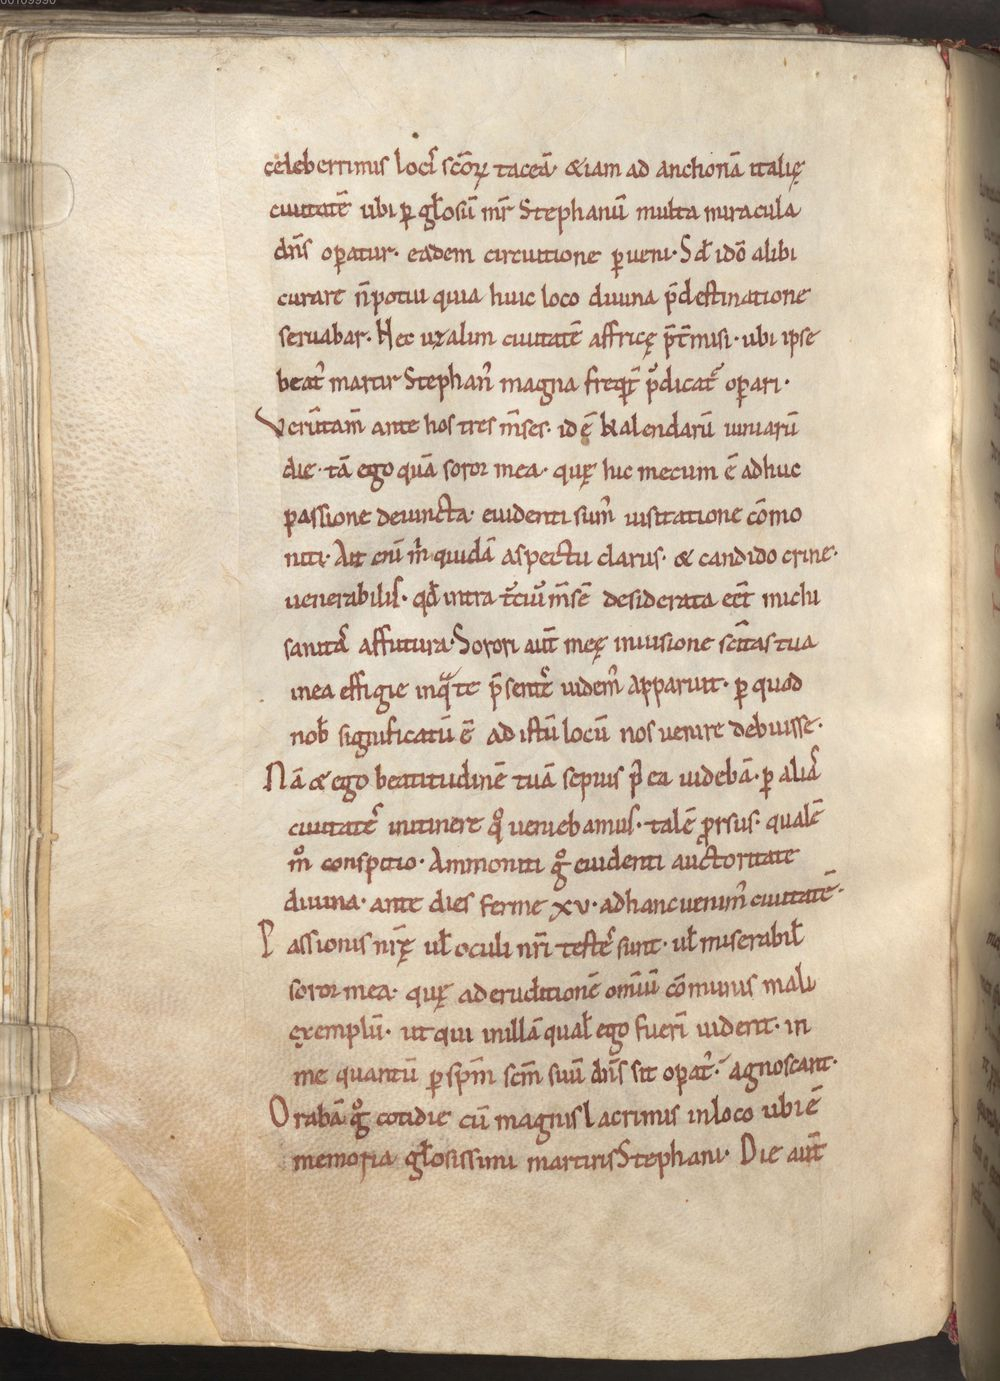 celeberrimis locis̄ scōꝝ taceā· &iam ad anchonā italię
ciuitatē ubi ꝑ gl̄osū mr̄ Stephanū multa miracula
dn̄s oꝑatur· eadem circuitione ꝑueni· Sꝫ idō alibi
curare n̄ potui quia huic loco diuina p̄destinatione
seruabar· Nec uzalim ciuitatē affricę p̄t̄misi· ubi ipse
beat᷒ martir Stephan᷒ magna freqt̄ p̄dicat᷒ oꝑari·
Verūtam̄ ante hos tres m̄ses· id ē kalendarū iunuarū
die· tā ego quā soror mea· quę hic mecum ē adhuc
passione deuincta· euidenti sum᷒ uisitatione cōmo
niti· Ait eni̅ m̄ quidā aspectu clarus· & candido crine·
uenerabilis· qđ intra t̄ciū m̄sē desiderata eēt michi
sanitas̄ affutura· Sorori aut̄ meę inuisione sc̄itas tua
inea effigie inqͣ te p̄sentē uidem᷒ apparuit· ꝑ quod
nob̄ significatū ē ad istū locū nos uenire debuisse·
Nā & ego beatitudinē tuā sepius p᷒ ea uidebā· ꝑ aliās
ciuitates̄ initinere qͦ ueniebamus· talē prorsus· qualē
m̊ conspitio· Ammoniti gͦ euidenti auctoritate
diuina· ante dies ferme xv· ad hanc uenim᷒ ciuitatē·
Passionis nr̄ę ul̄ oculi nr̄i testes̄ sunt· ul̄ miserabil̄
soror mea· quę ad eruditionē om̄iū cōmunis mali
exemplū· ut qui inillā qual̄ ego fuerī uident· in
me quantū ꝑ sp̄m scm̄ suū dn̄s sit oꝑat᷒· agnoscant·
Orabā gͦ cotidie cū magnis lacrimis inloco ubi ē
memoria gl̄osissimi martiris Stephani· Die aut̄